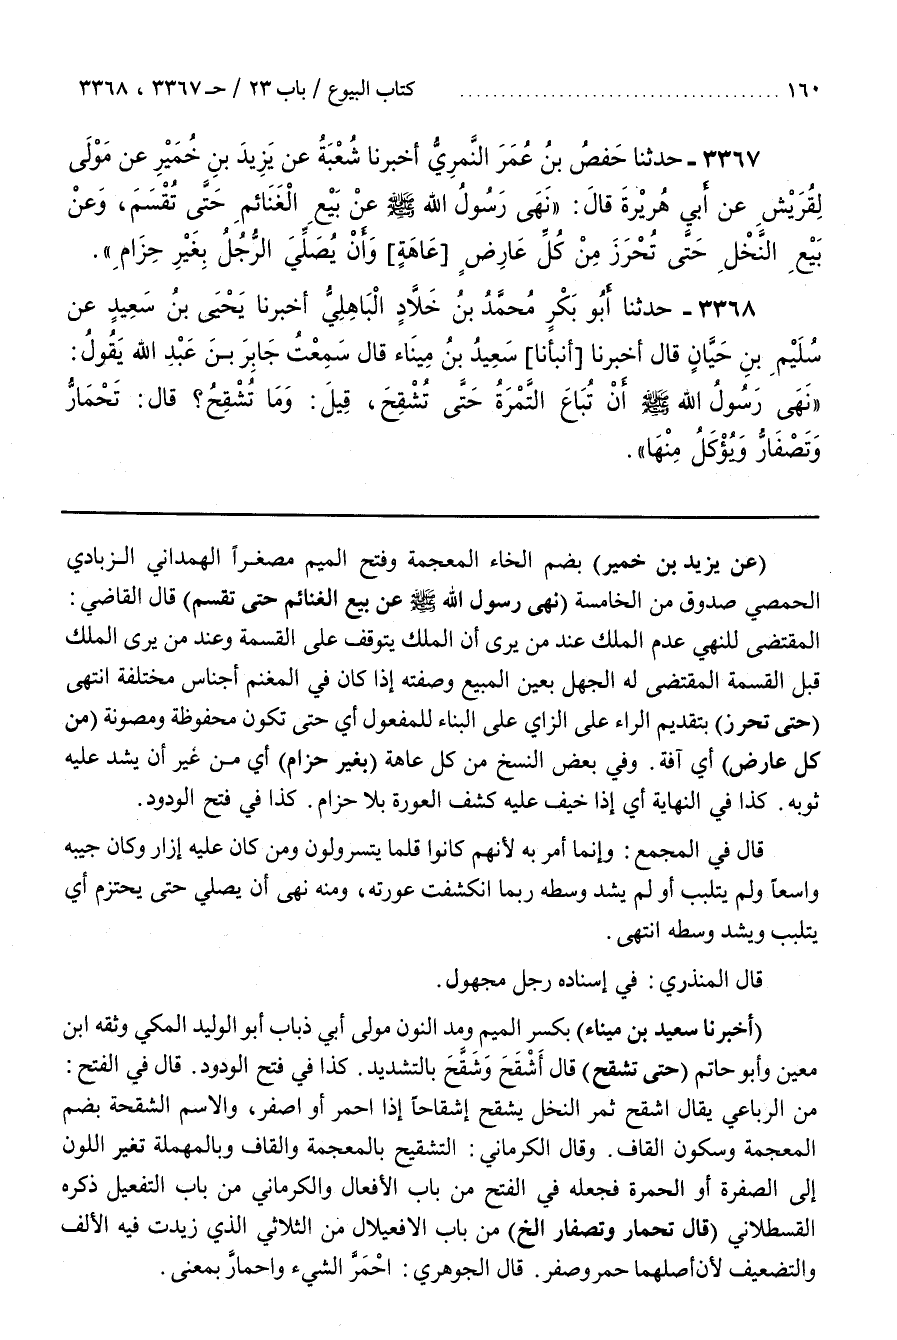 ١٦٠ ..................................... كتاب البيوع / باب ٢٣ / حـ ٣٣٦٧ ، ٣٣٦٨
٣٣٦٧ - حدثنا حَفصُ بنُ عُمَرَ النَّمرِيُّ أخبرنا شُعْبَةُ عن يَزِيدَ بنِ خُمَيْرِ عن مَوْلَى
لِقُرَيْشٍ عن أَبي هُريْرةَ قالَ: «نَهَى رَسُولُ الله ﷺ عنْ بَيْعِ الْغَنَائمِ حَتَّى تُقْسَمَ، وَعَنْ
بَيْعِ النَّخْلِ حَتَّى تُحْرَزَ مِنْ كُلِّ عَارِضٍ [عَاهَةٍ] وَأَنْ يُصَلِّيَ الرَّجُلُ بِغَيْرِ حِزَامٍ».
٣٣٦٨ - حدثنا أَبُو بَكْرٍ مُحمَّدُ بنُ خَلَّادٍ الْبَاهِلِيُّ أخبرنا يَحْيَى بنُ سَعِيدٍ عن
سُلَيْمِ بنِ حَيَّانٍ قال أخبرنا [أنبأنا] سَعِيدُ بنُ مِينَاء قال سَمِعْتُ جَابِرَ بـنَ عَبْدِ الله يَقُولُ:
«نَهَى رَسُولُ الله ﷺ أَنْ تُبَاعَ التَّمْرَةُ حَتَّى تُشْقِحَ، قِيلَ: وَمَا تُشْقِحُ؟ قال: تَحْمَارُّ
وَتَصْفَارُّ وَيُؤْكَلُ مِنْهَا».
(عن يزيد بن خمير) بضم الخاء المعجمة وفتح الميم مصغراً الهمداني الـزبادي
الحمصي صدوق من الخامسة (نهى رسول الله ﷺ عن بيع الغنائم حتى تقسم) قال القاضي:
المقتضى للنهي عدم الملك عند من يرى أن الملك يتوقف على القسمة وعند من يرى الملك
قبل القسمة المقتضى له الجهل بعين المبيع وصفته إذا كان في المغنم أجناس مختلفة انتهى
(حتى تحرز) بتقديم الراء على الزاي على البناء للمفعول أي حتى تكون محفوظة ومصونة (من
كل عارض) أي آفة. وفي بعض النسخ من كل عاهة (بغير حزام) أي مـن غير أن يشد عليه
ثوبه. كذا في النهاية أي إذا خيف عليه كشف العورة بلا حزام. كذا في فتح الودود.
قال في المجمع: وإنما أمر به لأنهم كانوا قلما يتسرولون ومن كان عليه إزار وكان جيبه
واسعاً ولم يتلبب أو لم يشد وسطه ربما انكشفت عورته، ومنه نهى أن يصلي حتى يحتزم أي
يتلبب ويشد وسطه انتهى.
قال المنذري: في إسناده رجل مجهول.
(أخبرنا سعيد بن ميناء) بكسر الميم ومد النون مولى أبي ذباب أبو الوليد المكي وثقه ابن
معين وأبو حاتم (حتى تشقح) قال أَشْقَحَ وَشَقَّحَ بالتشديد. كذا في فتح الودود. قال في الفتح:
من الرباعي يقال اشقح ثمر النخل يشقح إشقاحاً إذا احمر أو اصفر، والاسم الشقحة بضم
المعجمة وسكون القاف. وقال الكرماني: التشقيح بالمعجمة والقاف وبالمهملة تغير اللون
إلى الصفرة أو الحمرة فجعله في الفتح من باب الأفعال والكرماني من باب التفعيل ذكره
القسطلاني (قال تحمار وتصفار الخ) من باب الافعيلال من الثلاثي الذي زيدت فيه الألف
والتضعيف لأن أصلهما حمر وصفر. قال الجوهري: احْمَرَّ الشيء واحمارَّ بمعنى.